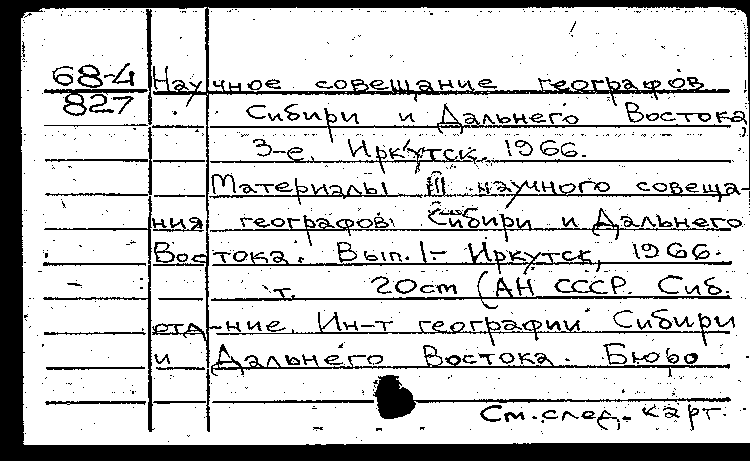 68-4
827
Научное совещание географов
Сибири и Дальнего Востока,
3-е. Иркутск. 1966.
Материалы III научного совеща-
ния географов Сибири и Дальнего
Востока. Вып. 1- Иркутск, 1966.
т. 20 cm (АН СССР. Сиб.
отд-ние. Ин-т географии Сибири
и Дальнего Востока. Бюро
См. след. карт.